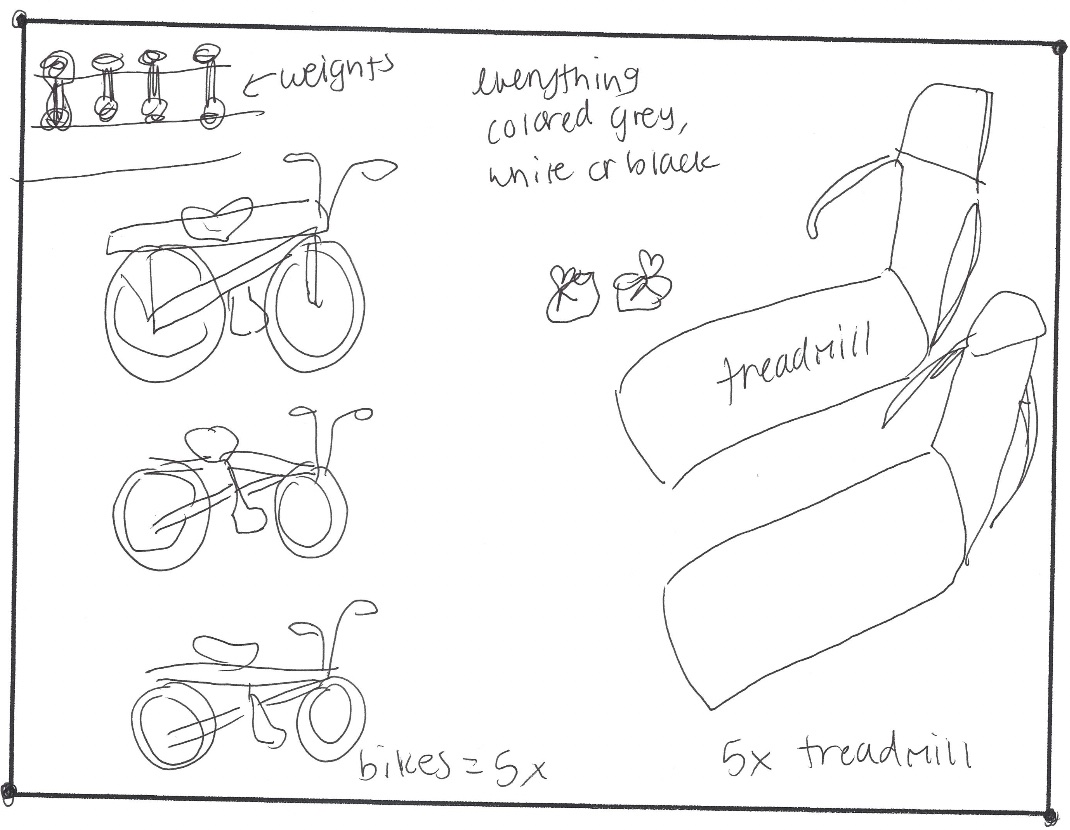 weights
everything
colored grey,
white or black
treadmill
bikes = 5x
5x treadmill